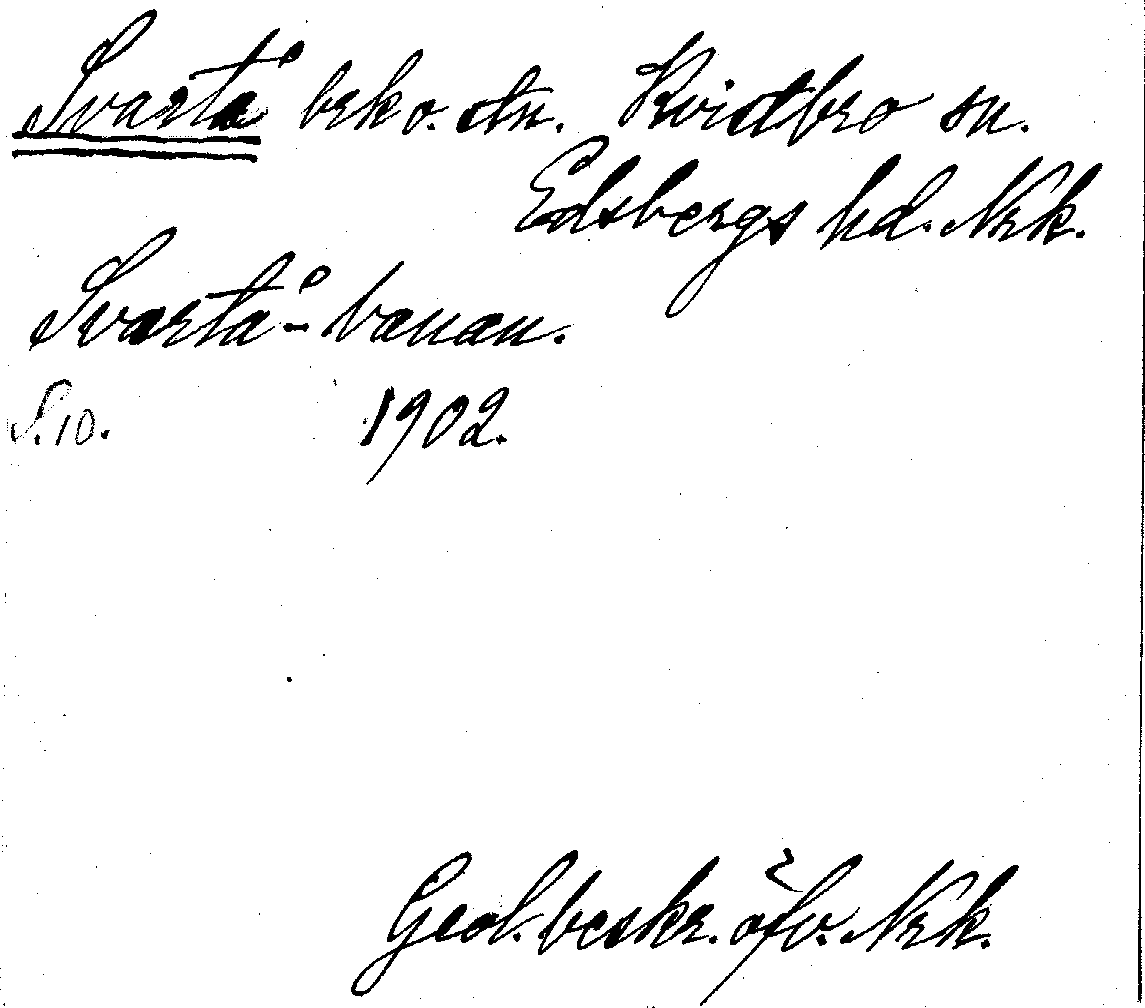 Svartå brk o. stn. Kvistbro sn.
Edsbergs hd. Nrk.
Svartå-banan.
S.10. 1902.
Geol. beskr. öfv. Nrk.